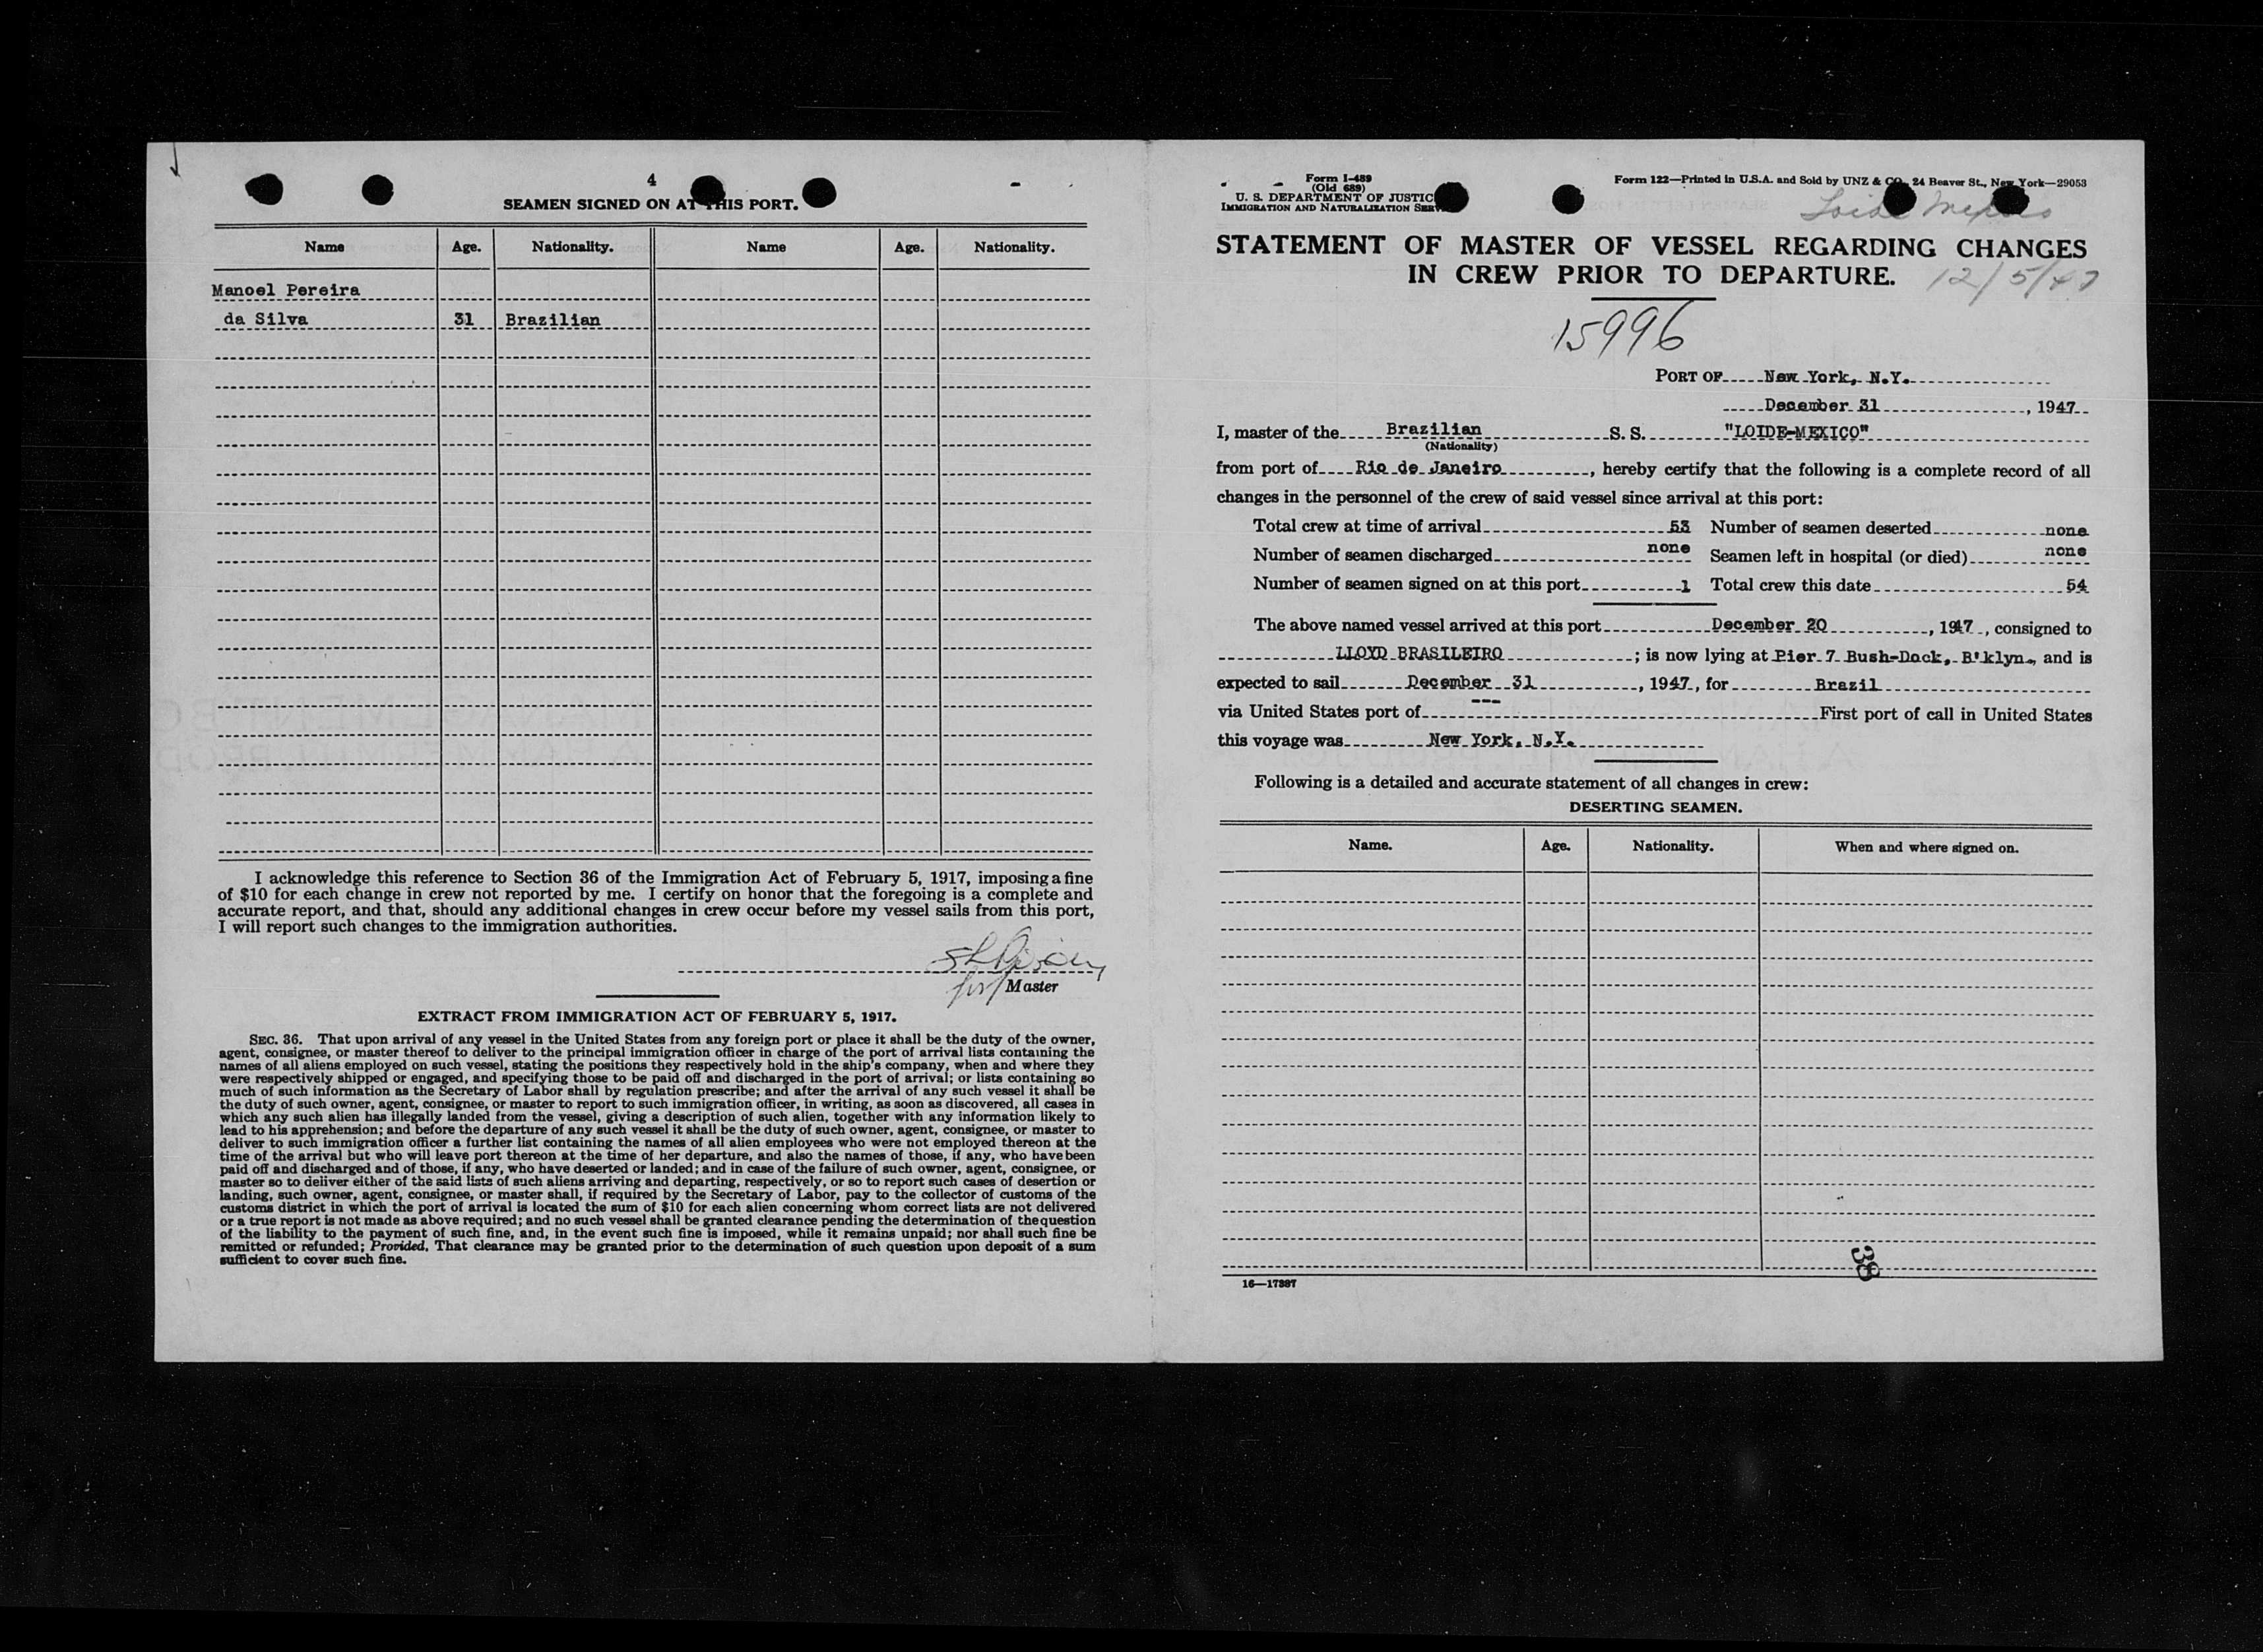 4
SEAMEN SIGNED ON AT THIS PORT.
Name Age. Nationality. Name Age. Nationality.
Manoel Pereira
da Silva 31 Brazilian
I acknowledge this reference to Section 36 of the Immigration Act of February 5, 1917, imposing a fine
of $10 for each change in crew not reported by me. I certify on honor that the foregoing is a complete and
accurate report, and that, should any additional changes in crew occur before my vessel sails from this port,
I will report such changes to the immigration authorities.
Master
EXTRACT FROM IMMIGRATION ACT OF FEBRUARY 5, 1917.
SEC. 36. That upon arrival of any vessel in the United States from any foreign port or place it shall be the duty of the owner,
agent, consignee, or master thereof to deliver to the principal immigration officer in charge of the port of arrival lists containing the
names of all aliens employed on such vessel, stating the positions they respectively hold in the ship's company, when and where they
were respectively shipped or engaged, and specifying those to be paid off and discharged in the port of arrival; or lists containing so
much of such information as the Secretary of Labor shall by regulation prescribe; and after the arrival of any such vessel it shall be
the duty of such owner, agent, consignee, or master to report to such immigration officer, in writing, as soon as discovered, all cases in
which any such alien has illegally landed from the vessel, giving a description of such alien, together with any information likely to
lead to his apprehension; and before the departure of any such vessel it shall be the duty of such owner, agent, consignee, or master to
deliver to such immigration officer a further list containing the names of all alien employees who were not employed thereon at the
time of the arrival but who will leave port thereon at the time of her departure, and also the names of those, if any, who have been
paid off and discharged and of those, if any, who have deserted or landed; and in case of the failure of such owner, agent, consignee, or
master so to deliver either of the said lists of such aliens arriving and departing, respectively, or so to report such cases of desertion or
landing, such owner, agent, consignee, or master shall, if required by the Secretary of Labor, pay to the collector of customs of the
customs district in which the port of arrival is located the sum of $10 for each alien concerning whom correct lists are not delivered
or a true report is not made as above required; and no such vessel shall be granted clearance pending the determination of the question
of the liability to the payment of such fine, and, in the event such fine is imposed, while it remains unpaid; nor shall such fine be
remitted or refunded; Provided, That clearance may be granted prior to the determination of such question upon deposit of a sum
sufficient to cover such fine.
Form I-489
(Old 689)
U. S. DEPARTMENT OF JUSTIC
IMMIGRATION AND NATURALIZATION SERV
Form 122—Printed in U.S.A. and Sold by UNZ & CO., 24 Beaver St., New York—29053
Loide Mexico
STATEMENT OF MASTER OF VESSEL REGARDING CHANGES
IN CREW PRIOR TO DEPARTURE.
12/5/47
15996
PORT OF New York, N.Y.
December 31, 1947
I, master of the Brazilian S. S. "LOIDE-MEXICO"
(Nationality)
from port of Rio de Janeiro, hereby certify that the following is a complete record of all
changes in the personnel of the crew of said vessel since arrival at this port:
Total crew at time of arrival 53 Number of seamen deserted none
Number of seamen discharged none Seamen left in hospital (or died) none
Number of seamen signed on at this port 1 Total crew this date 54
The above named vessel arrived at this port December 20, 1947, consigned to
LLOYD BRASILEIRO; is now lying at Pier 7 Bush-Dock, B'klyn., and is
expected to sail December 31, 1947, for Brazil
via United States port of --- First port of call in United States
this voyage was New York, N.Y.
Following is a detailed and accurate statement of all changes in crew:
DESERTING SEAMEN.
Name. Age. Nationality. When and where signed on.
38
16—17887